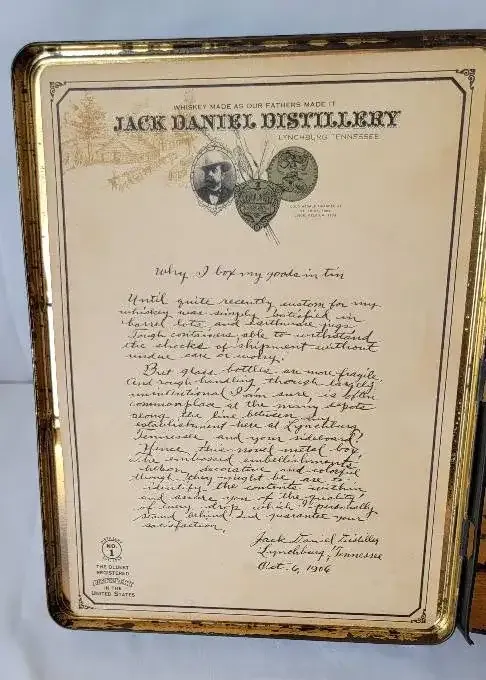 WHISKEY MADE AS OUR FATHERS MADE IT
JACK DANIEL DISTILLERY
LYNCHBURG, TENNESSEE
Why I box my goods in tin
Until quite recently custom for my
whiskey was simply satisfied in
barrel lots and earthware jugs.
Tough containers able to withstand
the shocks of shipment without
undue care or worry.
But glass bottles are more fragile.
And rough handling though largely
unintentional I am sure, is often
commonplace at the many stops
along the line between my
establishment here at Lynchburg
Tennessee, and your sideboard!
Hence this novel metal box.
The embossed embellishments
albeit decorative and colorful
though they might be are to
identify the contents within
and assure you of the quality
of every drop which I personally
stand behind and guarantee your
satisfaction.
Jack Daniel Distiller
Lynchburg, Tennessee
Oct. 6, 1906
NO.
1
THE OLDEST
REGISTERED
DISTILLERY
IN THE
UNITED STATES